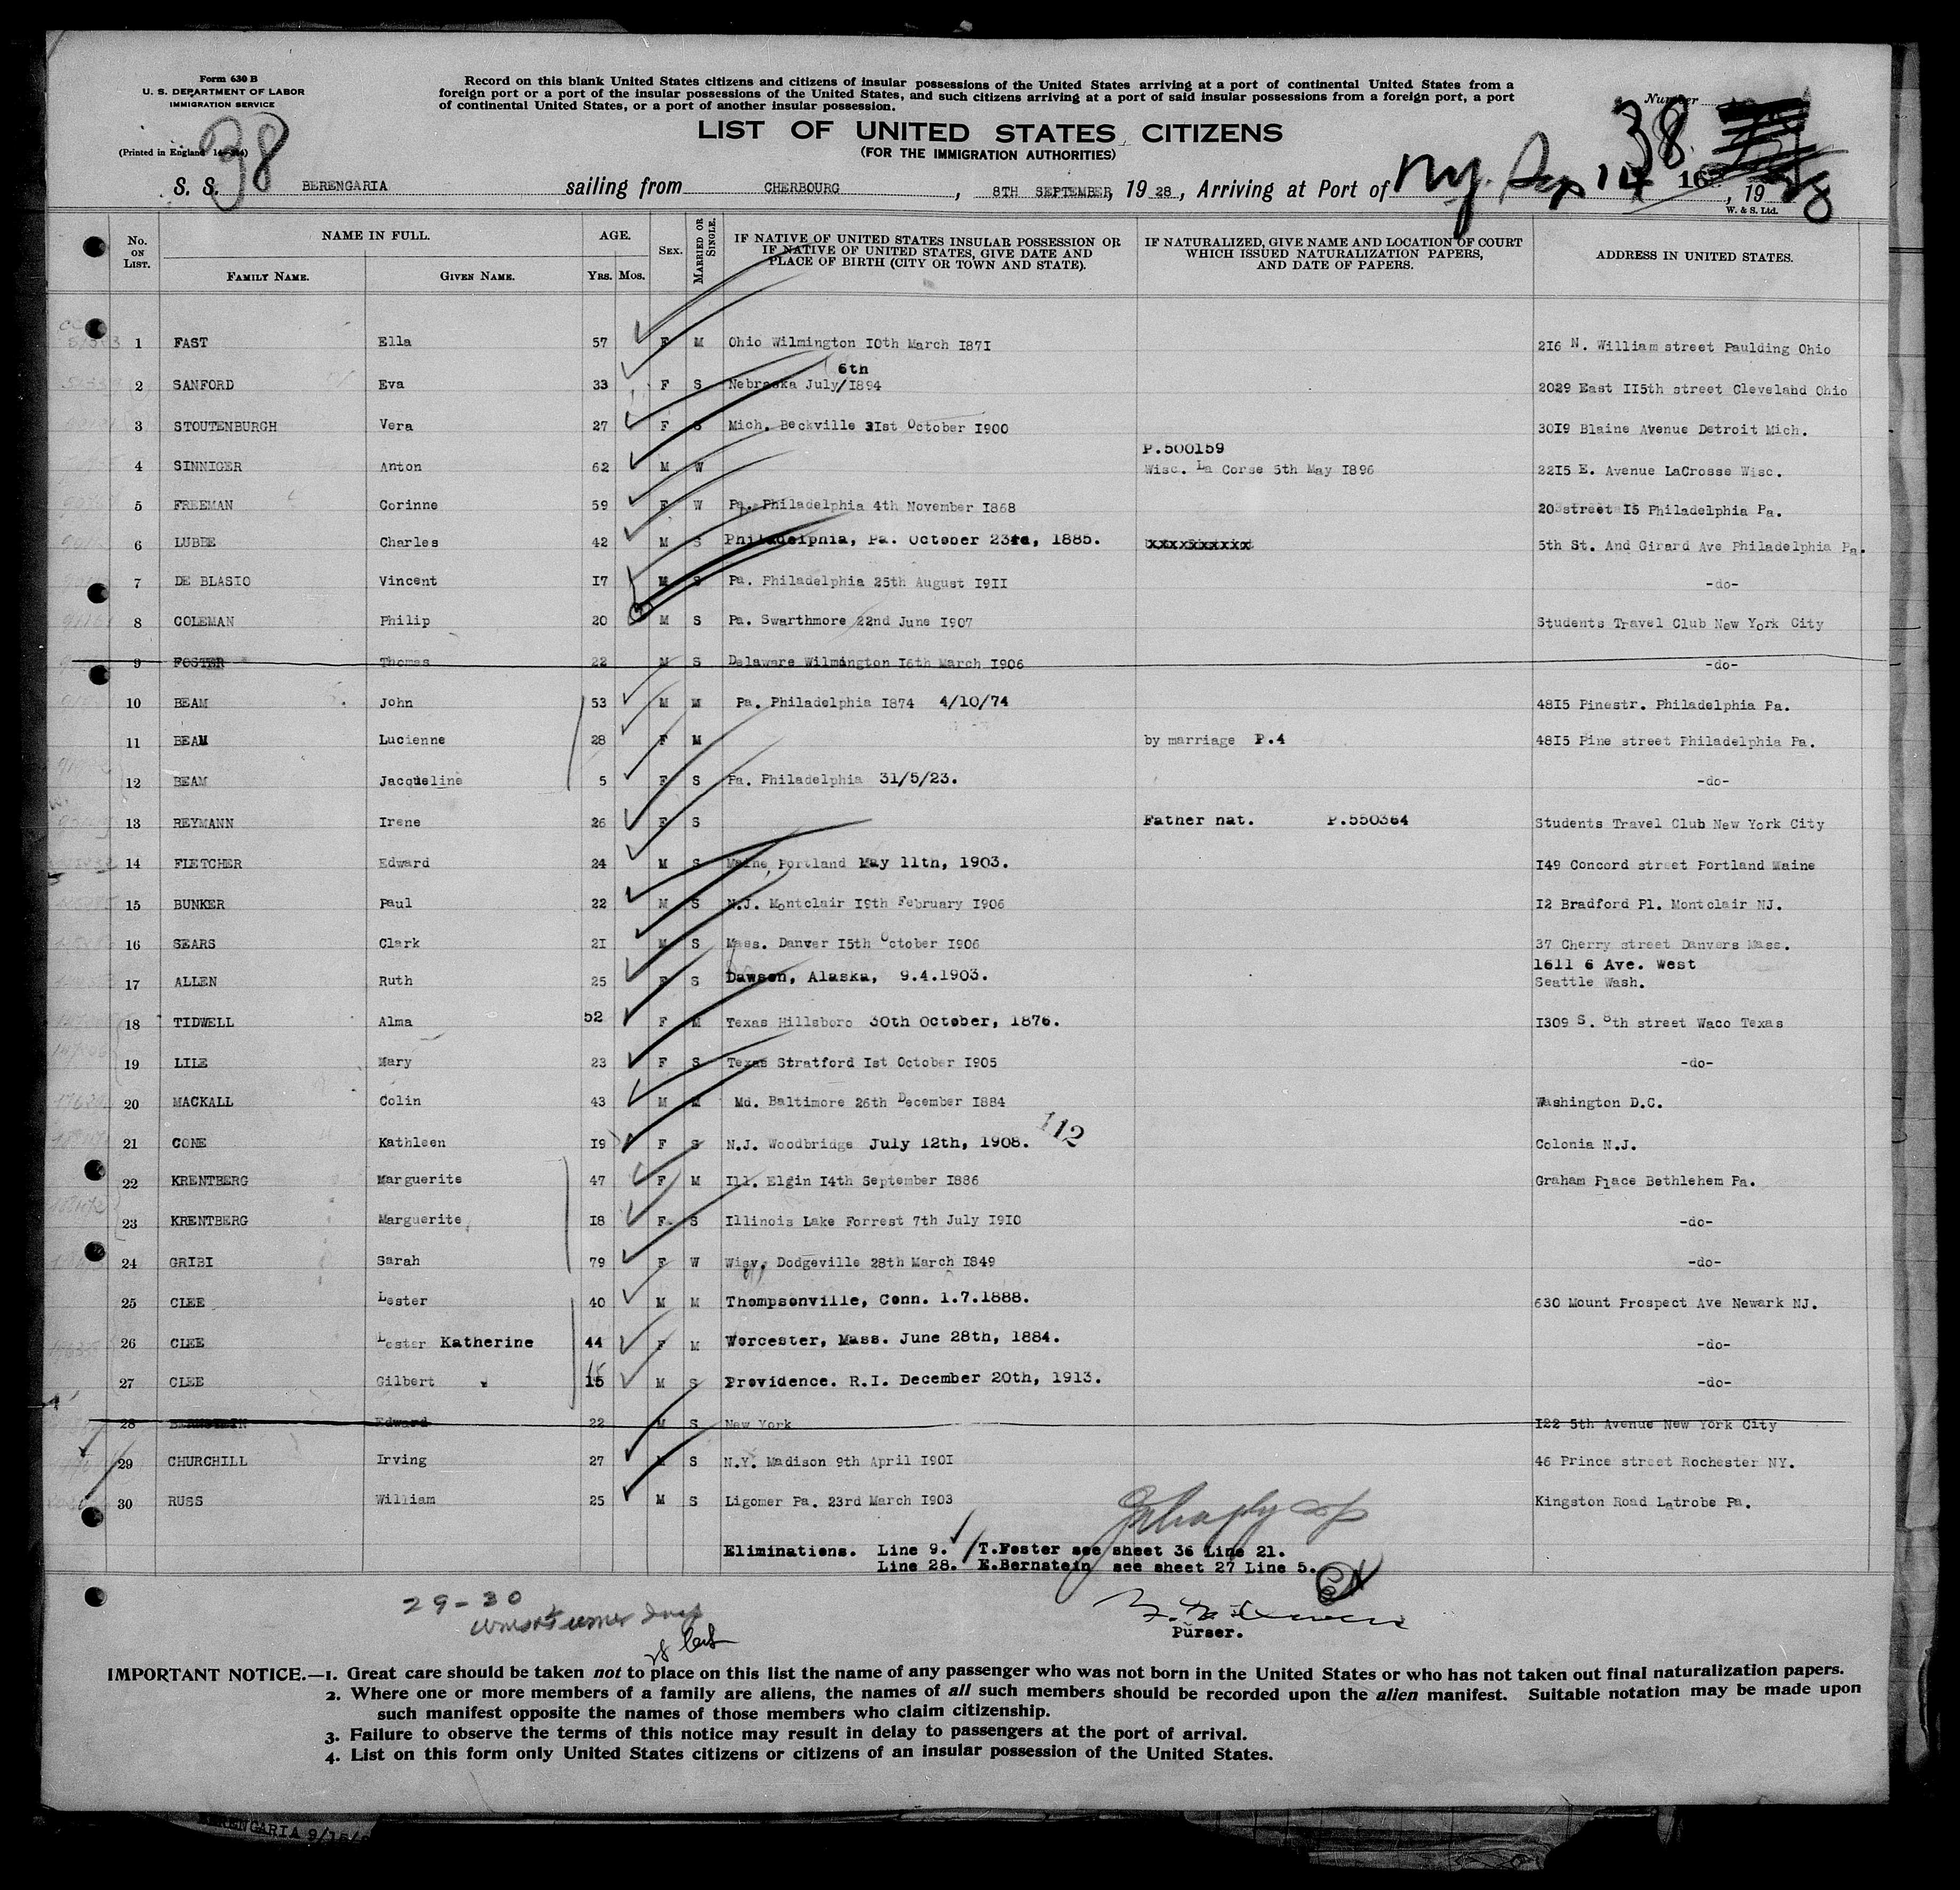 Form 630 B
U. S. DEPARTMENT OF LABOR
IMMIGRATION SERVICE
(Printed in England
38
Record on this blank United States citizens and citizens of insular possessions of the United States arriving at a port of continental United States from a
foreign port or a port of the insular possessions of the United States, and such citizens arriving at a port of said insular possessions from a foreign port, a port
of continental United States, or a port of another insular possession.
Number
38
LIST OF UNITED STATES CITIZENS
(FOR THE IMMIGRATION AUTHORITIES)
S. S. BERENGARIA sailing from CHERBOURG, 8TH SEPTEMBER, 19 28, Arriving at Port of NY. Sep 14, 19 28
W. & S. Ltd.
No. ON LIST. NAME IN FULL. FAMILY NAME. GIVEN NAME. AGE. YRS. MOS. SEX. MARRIED OR SINGLE. IF NATIVE OF UNITED STATES INSULAR POSSESSION OR IF NATIVE OF UNITED STATES, GIVE DATE AND PLACE OF BIRTH (CITY OR TOWN AND STATE). IF NATURALIZED, GIVE NAME AND LOCATION OF COURT WHICH ISSUED NATURALIZATION PAPERS, AND DATE OF PAPERS. ADDRESS IN UNITED STATES.
1 FAST Ella 57 F M Ohio Wilmington I0th March I87I 2I6 N. William street Paulding Ohio
6th
2 SANFORD Eva 33 F S Nebraska July/I894 2029 East II5th street Cleveland Ohio
3 STOUTENBURGH Vera 27 F S Mich. Beckville 3Ist October I900 30I9 Blaine Avenue Detroit Mich.
P.500159
4 SINNIGER Anton 62 M W Wisc. La Corse 5th May I896 22I5 E. Avenue LaCrosse Wisc.
5 FREEMAN Corinne 59 F W Pa. Philadelphia 4th November I868 203street I5 Philadelphia Pa.
6 LUBBE Charles 42 M S Philadelphia, Pa. October 23rd, 1885. xxxxxxxxxx 5th St. And Girard Ave Philadelphia Pa.
7 DE BLASIO Vincent I7 M S Pa. Philadelphia 25th August I9II -do-
8 COLEMAN Philip 20 M S Pa. Swarthmore 22nd June I907 Students Travel Club New York City
9 FOSTER Thomas 22 M S Delaware Wilmington I6th March I906 -do-
10 BEAM John 53 M M Pa. Philadelphia I874 4/10/74 48I5 Pinestr. Philadelphia Pa.
11 BEAM Lucienne 28 F M by marriage P.4 48I5 Pine street Philadelphia Pa.
12 BEAM Jacqueline 5 F S Pa. Philadelphia 31/5/23. -do-
13 REYMANN Irene 26 F S Father nat. P.550364 Students Travel Club New York City
14 FLETCHER Edward 24 M S Maine, Portland May 11th, 1903. I49 Concord street Portland Maine
15 BUNKER Paul 22 M S N.J. Montclair I9th February I906 I2 Bradford Pl. Montclair NJ.
16 SEARS Clark 2I M S Mass. Danver I5th October I906 37 Cherry street Danvers Mass.
1611 6 Ave. West
17 ALLEN Ruth 25 F S Dawson, Alaska, 9.4.1903. Seattle Wash.
18 TIDWELL Alma 52 F M Texas Hillsboro 30th October, 1876. I309 S. 8th street Waco Texas
19 LILE Mary 23 F S Texas Stratford Ist October I905 -do-
20 MACKALL Colin 43 M M Md. Baltimore 26th December I884 Washington D.C.
21 CONE Kathleen I9 F S N.J. Woodbridge July 12th, 1908. 112 Colonia N.J.
22 KRENTBERG Marguerite 47 F M Ill. Elgin I4th September I886 Graham Place Bethlehem Pa.
23 KRENTBERG Marguerite I8 F S Illinois Lake Forrest 7th July I9I0 -do-
24 GRIBI Sarah 79 F W Dodgeville 28th March I849 -do-
25 CLEE Lester 40 M M Thompsonville, Conn. 1.7.1888. 630 Mount Prospect Ave Newark NJ.
26 CLEE Lester Katherine 44 F M Worcester, Mass. June 28th, 1884. -do-
27 CLEE Gilbert 15 M S Providence. R.I. December 20th, 1913. -do-
28 BERNSTEIN Edward 22 M S New York I22 5th Avenue New York City
29 CHURCHILL Irving 27 M S N.Y. Madison 9th April I90I 46 Prince street Rochester NY.
30 RUSS William 25 M S Ligomer Pa. 23rd March I903 Kingston Road Latrobe Pa.
Eliminations. Line 9. T.Foster see sheet 36 Line 21.
Line 28. E.Bernstein see sheet 27 Line 5.
29-30
Purser.
IMPORTANT NOTICE.—1. Great care should be taken not to place on this list the name of any passenger who was not born in the United States or who has not taken out final naturalization papers.
2. Where one or more members of a family are aliens, the names of all such members should be recorded upon the alien manifest. Suitable notation may be made upon
such manifest opposite the names of those members who claim citizenship.
3. Failure to observe the terms of this notice may result in delay to passengers at the port of arrival.
4. List on this form only United States citizens or citizens of an insular possession of the United States.
BERENGARIA